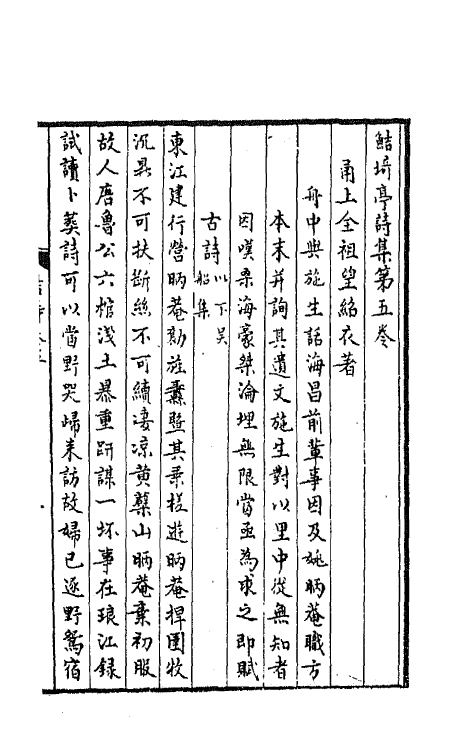 鮚埼亭詩集第五卷
甬上全祖望紹衣著
舟中與施生話海昌前輩事因及姚眪菴職方
本末并詢其遺文施生對以里中從無知者
因嘆桑海豪桀淪埋無限當亟為求之即賦
古詩以下吴船集
東江建行營眪菴勷旌纛暨其乘槎遊眪菴捍圉牧
沉鼎不可扶斷絲不可續淒凉黄蘗山眪菴棄初服
故人唐魯公六棺淺土暴重趼謀一抔事在琅江録
試讀卜葬詩可以當野哭歸来訪故婦已逐野鴛宿